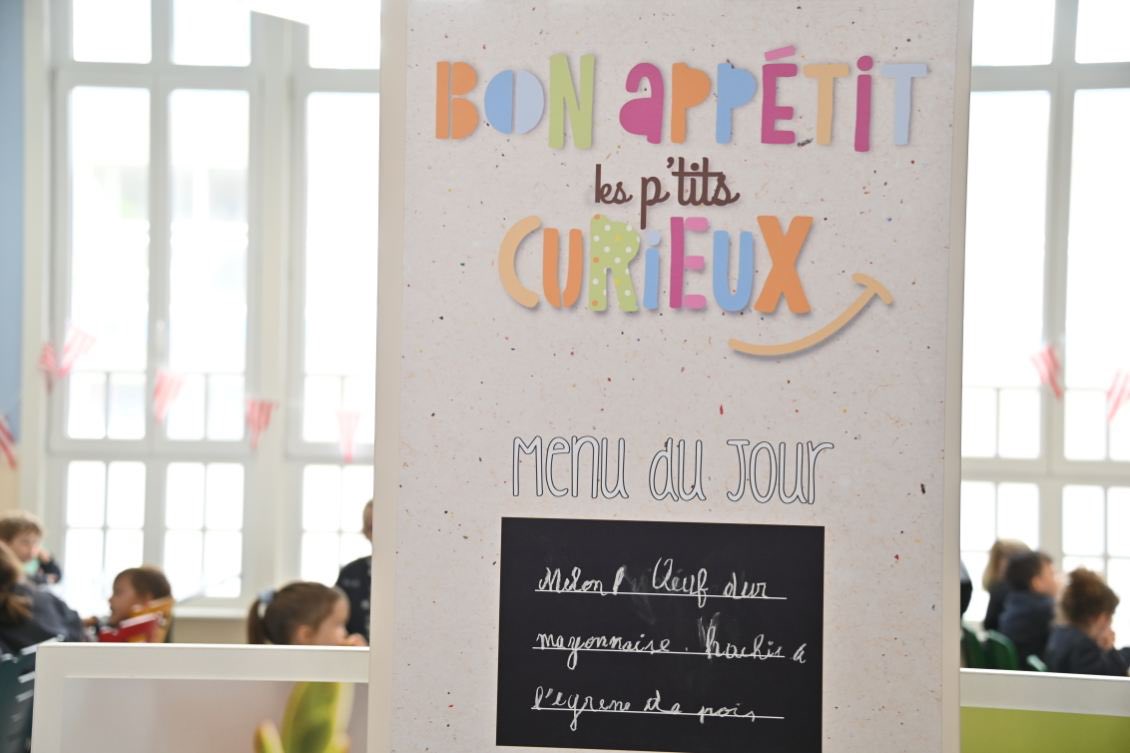 BON APPÉTIT
les p'tits
CURIEUX
MENU DU JOUR
Melon / Oeuf dur
mayonnaise. hachis à
l'égréné de pois